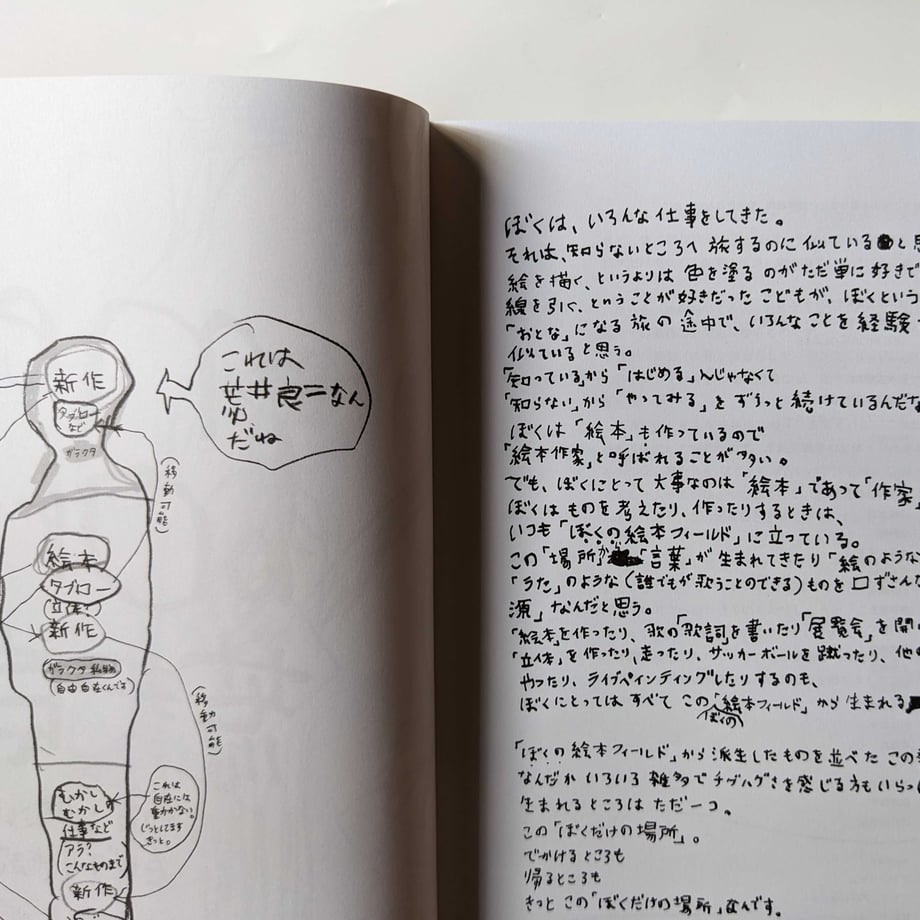 新作
タブロー
など
ガラクタ
これは
荒井良二なん
だね
(移動可能)
絵本
タブロー
(立体?)
新作
ガラクタ
(自由自在くんです)
(移動可能)
むかし
むかしす
仕事など
アラ?
こんなものまで
これは
自在には
動かない。
じっとしてます
きっと。
新作
ぼくは、いろんな仕事をしてきた。
それは、知らないところへ旅するのに似ていると思
絵を描く、というよりは色を塗るのがただ単に好きで
線を引く、ということが好きだったこどもが、ぼくという
「おとな」になる旅の途中で、いろんなことを経験
似ていると思う。
「知っている」から「はじめる」んじゃなくて
「知らない」から「やってみる」をずうっと続けているんだな
ぼくは「絵本」も作っているので
「絵本作家」と呼ばれることが多い。
でも、ぼくにとって大事なのは「絵本」であって「作家」
ぼくはものを考えたり、作ったりするときは、
いつも「ぼくの絵本フィールド」に立っている。
この「場所」が「言葉」が生まれてきたり「絵のような
「うた」のような(誰でもが歌うことのできる)ものを口ずさんだ
源」なんだと思う。
「絵本」を作ったり、歌の「歌詞」を書いたり「展覧会」を開い
「立体」を作ったり、走ったり、サッカーボールを蹴ったり、他の
やったり、ライブペインティングしたりするのも、
ぼくにとってはすべてこの「ぼくの絵本フィールド」から生まれる
「ぼくの絵本フィールド」から派生したものを並べたこの
なんだかいろいろ雑多でチグハグさを感じる方もいらっ
生まれるところはただ一つ。
この「ぼくだけの場所」。
でかけるところも
帰るところも
きっとこの「ぼくだけの場所」なんです。